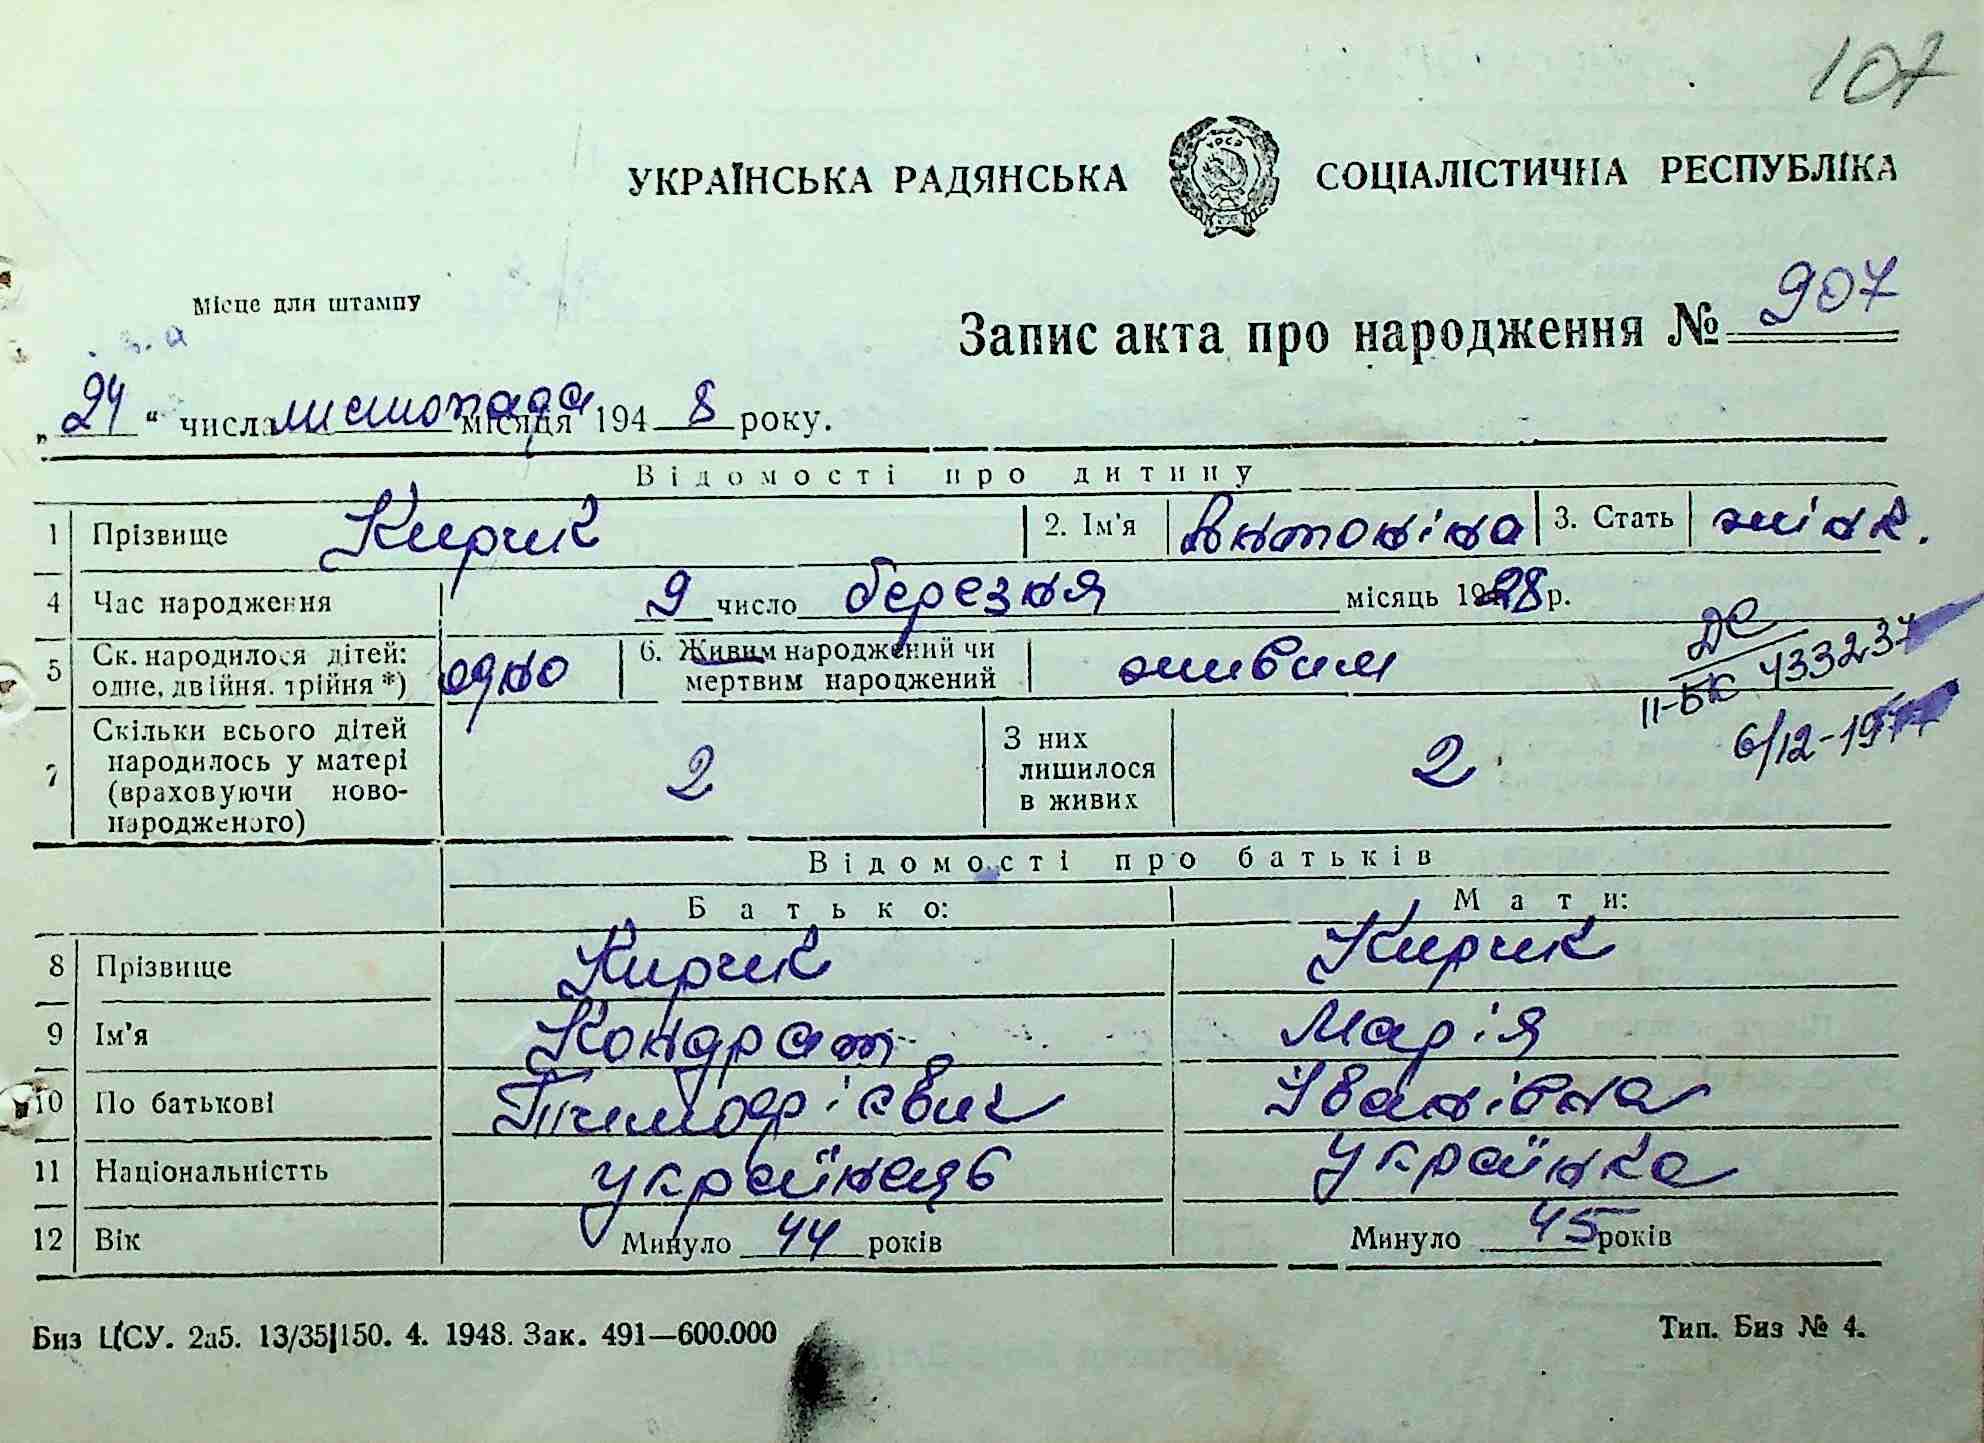 107
УКРАЇНСЬКА РАДЯНСЬКА СОЦІАЛІСТИЧНА РЕСПУБЛІКА
УРСР
Місце для штампу
з. а
Запис акта про народження № 907
„24“ числа листопада місяця 1948 року.
Відомості про дитину
1 Прізвище Кирчик 2. Ім'я Антоніна 3. Стать жінк.
4 Час народження 9 число березня місяць 1928 р.
5 Ск. народилося дітей: одне, двійня, трійня *) одно 6. Живим народжений чи мертвим народжений живим
ДС
ІІ-БК 433237
6/12-19
7 Скільки всього дітей народилось у матері (враховуючи ново-народженого) 2 З них лишилося в живих 2
Відомості про батьків
Батько: Мати:
8 Прізвище Кирчик Кирчик
9 Ім'я Кондрат Марія
10 По батькові Тимофієвич Іванівна
11 Національністть українець українка
12 Вік Минуло 44 років Минуло 45 років
Биз ЦСУ. 2аб. 13/35|150. 4. 1948. Зак. 491—600.000 Тип. Биз № 4.